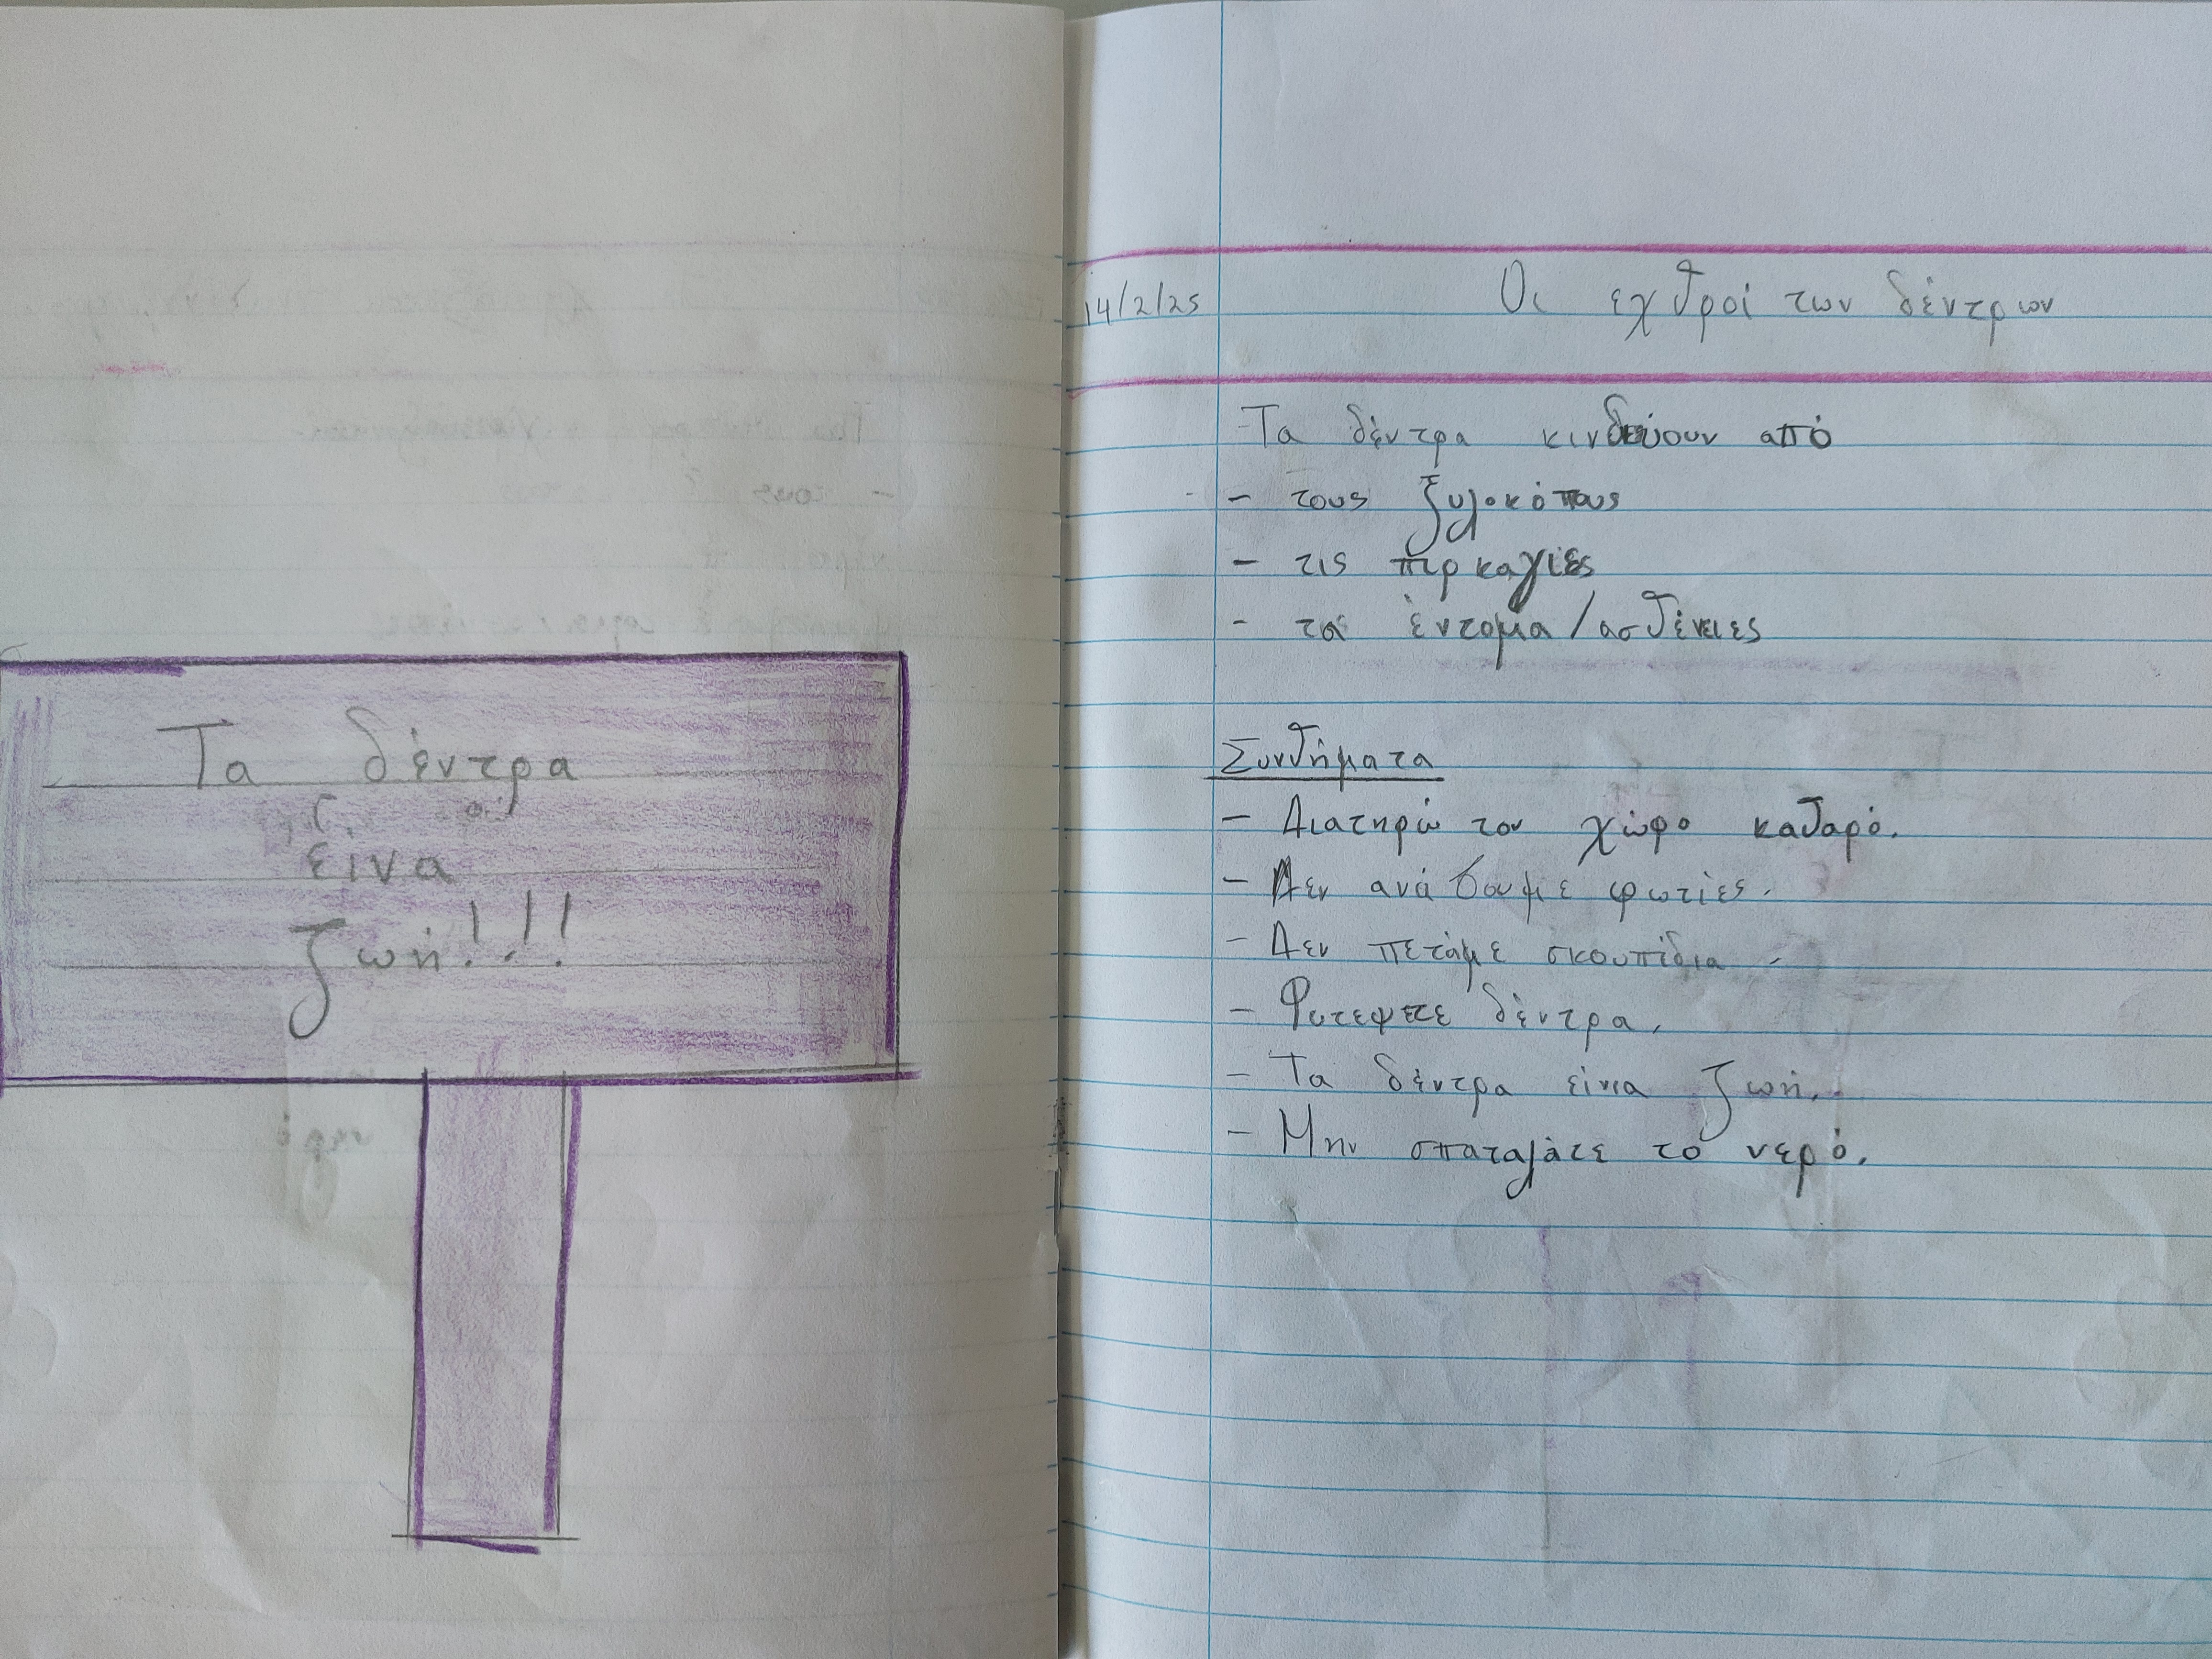 Τα δέντρα
είνα
ζωή!!!
14/2/25 Οι εχθροί των δέντρων
Τα δέντρα κινδεύουν από
- τους ξυλοκόπους
- τις πιρκαγιές
- τα έντομα/ασθένειες
Συνθήματα
- Διατηρώ τον χώρο καθαρό.
- Δεν ανάβουμε φωτιές.
- Δεν πετάμε σκουπίδια.
- Φυτεψετε δέντρα.
- Τα δέντρα είνια ζωή.
- Μην σπαταλάτε το νερό.